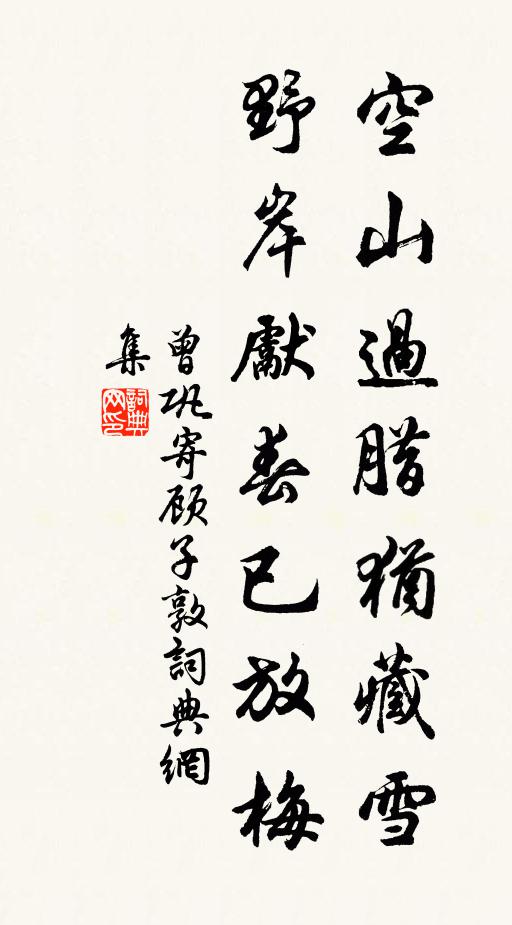 空山過腊猶藏雪
野岸獻春已放梅
曾巩寄顾子敦詞典網
集
詞典
网印